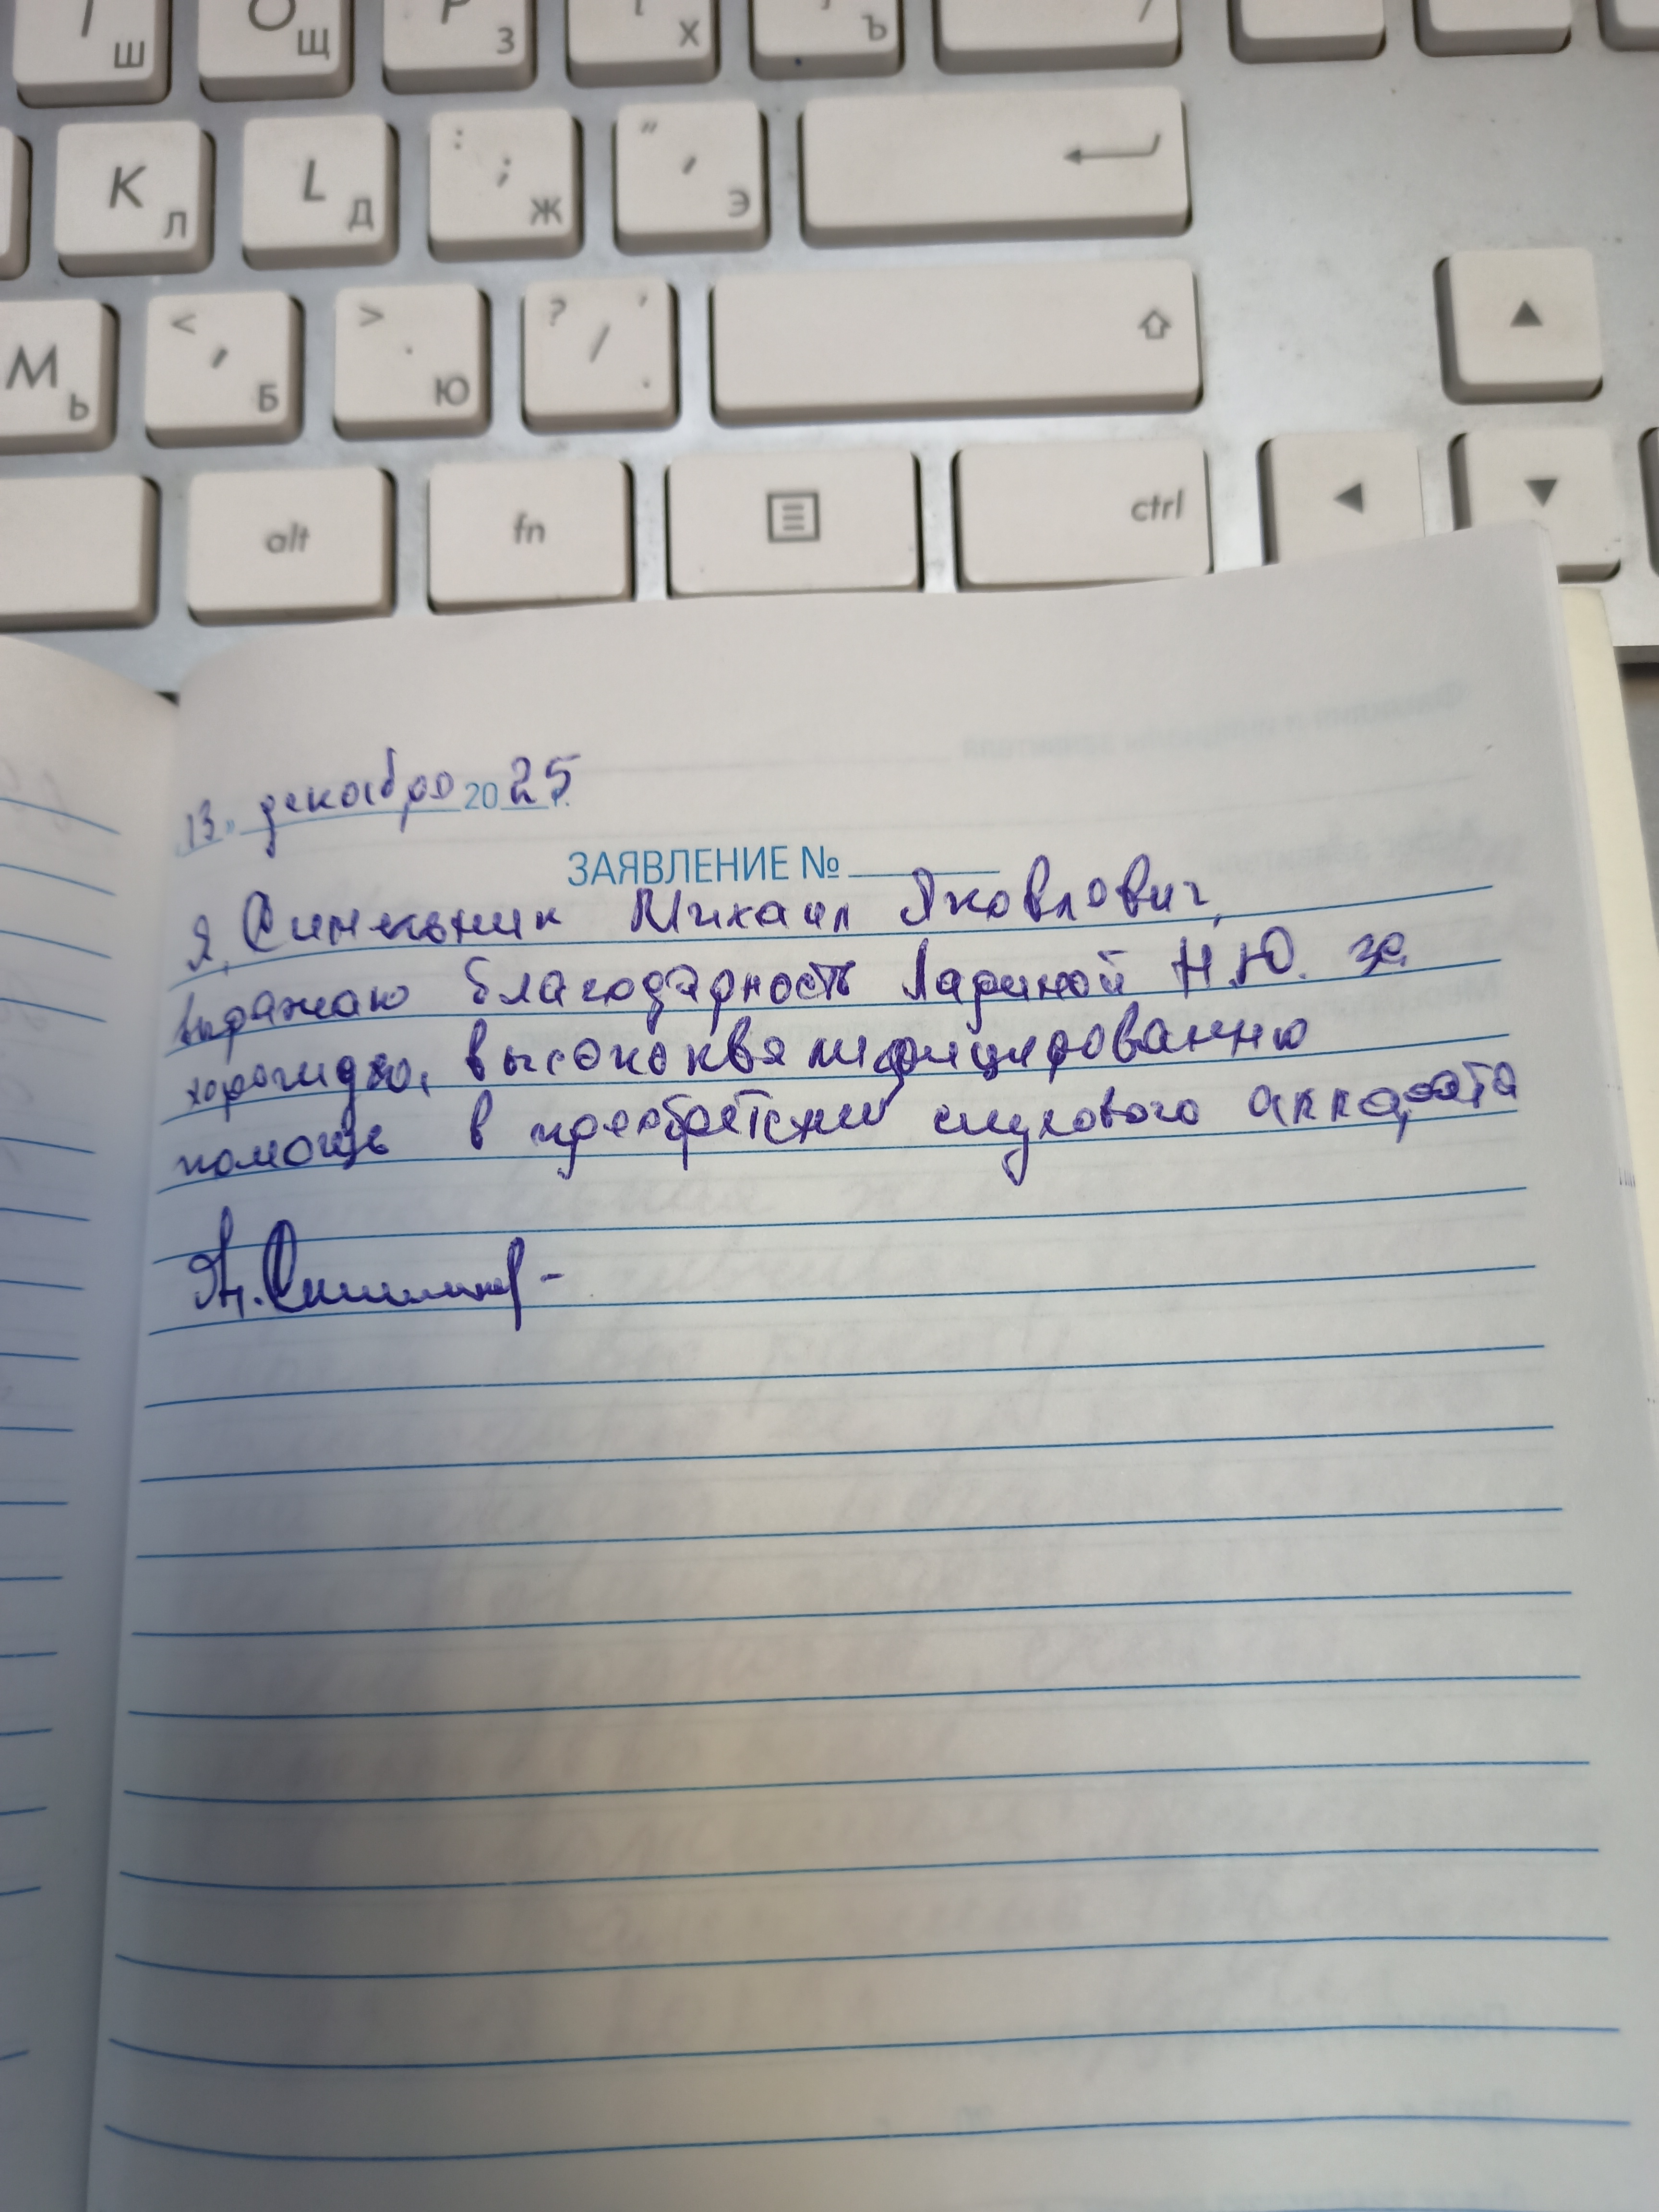 Ш Щ З Х Ъ /
K Л L Д : ; Ж " ' Э
M Ь < , Б > . Ю ? / , .
alt fn ctrl
13 » декабря 2025 г.
ЗАЯВЛЕНИЕ №
Я, Синельник Михаил Яковлович,
выражаю благодарность Лариной Н.Ю. за
хорошую, высококвялифицированню
помощь в преобретении слухового аппарата